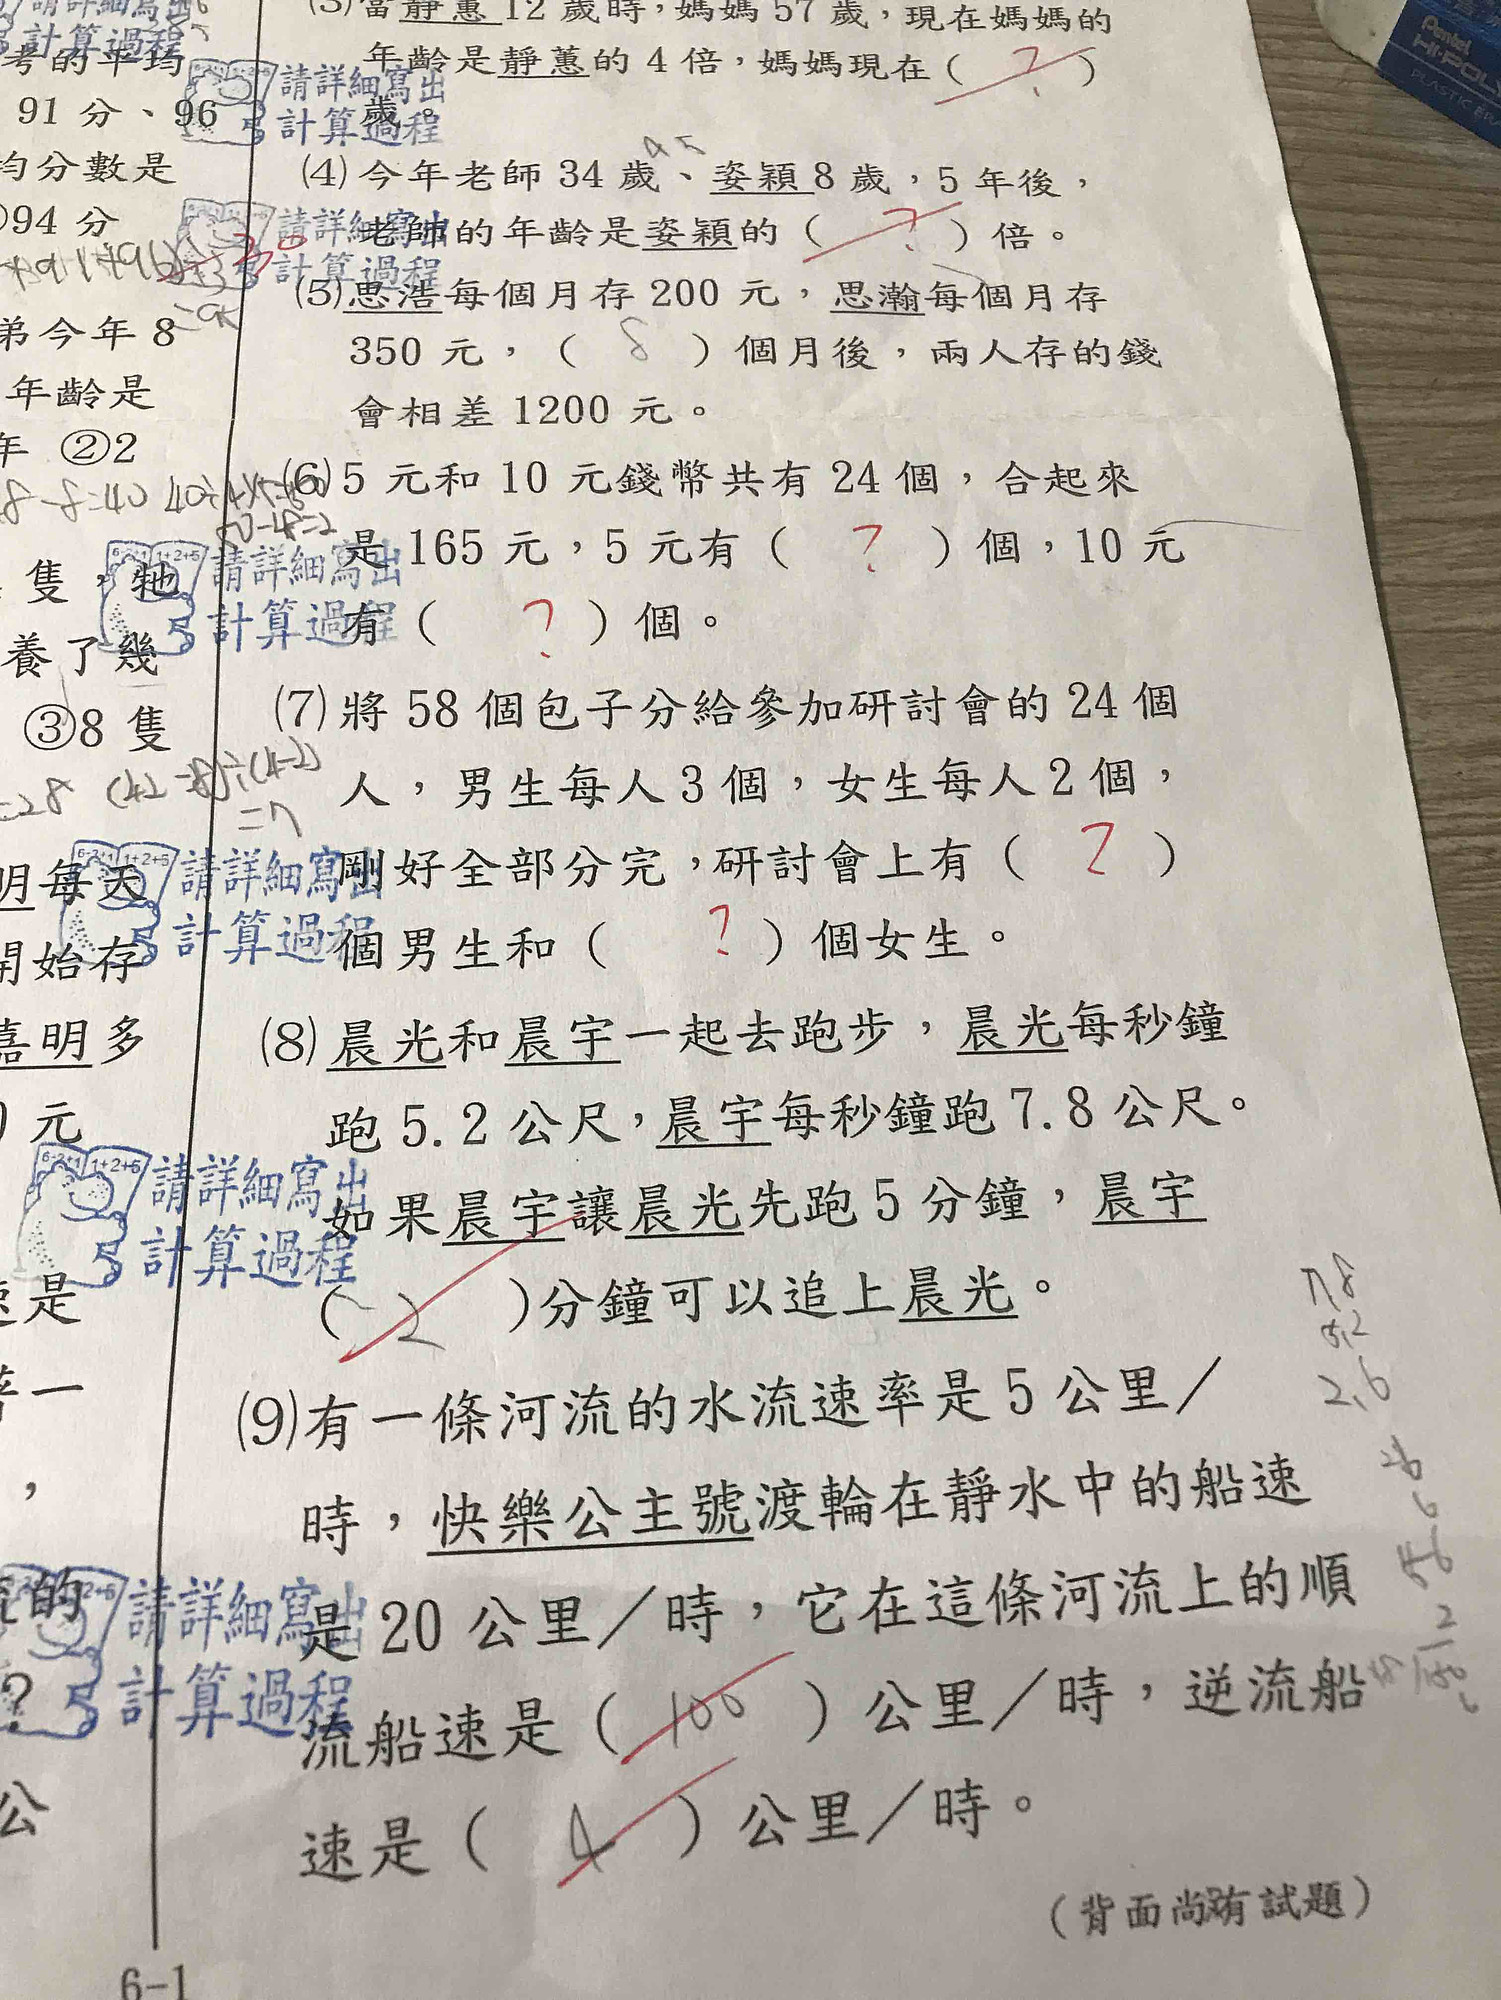 請詳細寫出
計算過程
考的平均
91 分、96
均分數是
94 分
弟今年 8
年齡是
年 ②2
8-8=40
隻，牠
養了幾
③8 隻
=28 (42-28)÷(4-2)
=7
明每天
開始存
嘉明多
元
速是
著一
，
流的
？
公
請詳細寫出
計算過程
請詳細寫出
計算過程
請詳細寫出
計算過程
請詳細寫出
計算過程
請詳細寫出
計算過程
請詳細寫出
計算過程
6-1
(3)當靜蕙 12 歲時，媽媽 57 歲，現在媽媽的
年齡是靜蕙的 4 倍，媽媽現在（ ? ）
歲。
45
(4)今年老師 34 歲、姿穎 8 歲，5 年後，
老師的年齡是姿穎的（ ? ）倍。
(5)思浩每個月存 200 元，思瀚每個月存
350 元，（ 8 ）個月後，兩人存的錢
會相差 1200 元。
(6)5 元和 10 元錢幣共有 24 個，合起來
是 165 元，5 元有（ ? ）個，10 元
有（ ? ）個。
(7)將 58 個包子分給參加研討會的 24 個
人，男生每人 3 個，女生每人 2 個，
剛好全部分完，研討會上有（ ? ）
個男生和（ ? ）個女生。
(8)晨光和晨宇一起去跑步，晨光每秒鐘
跑 5.2 公尺，晨宇每秒鐘跑 7.8 公尺。
如果晨宇讓晨光先跑 5 分鐘，晨宇
（ 2 ）分鐘可以追上晨光。
7.8
5.2
2.6
(9)有一條河流的水流速率是 5 公里／
時，快樂公主號渡輪在靜水中的船速
是 20 公里／時，它在這條河流上的順
流船速是（ 100 ）公里／時，逆流船
速是（ 4 ）公里／時。
26
6
156
2
（背面尚有試題）